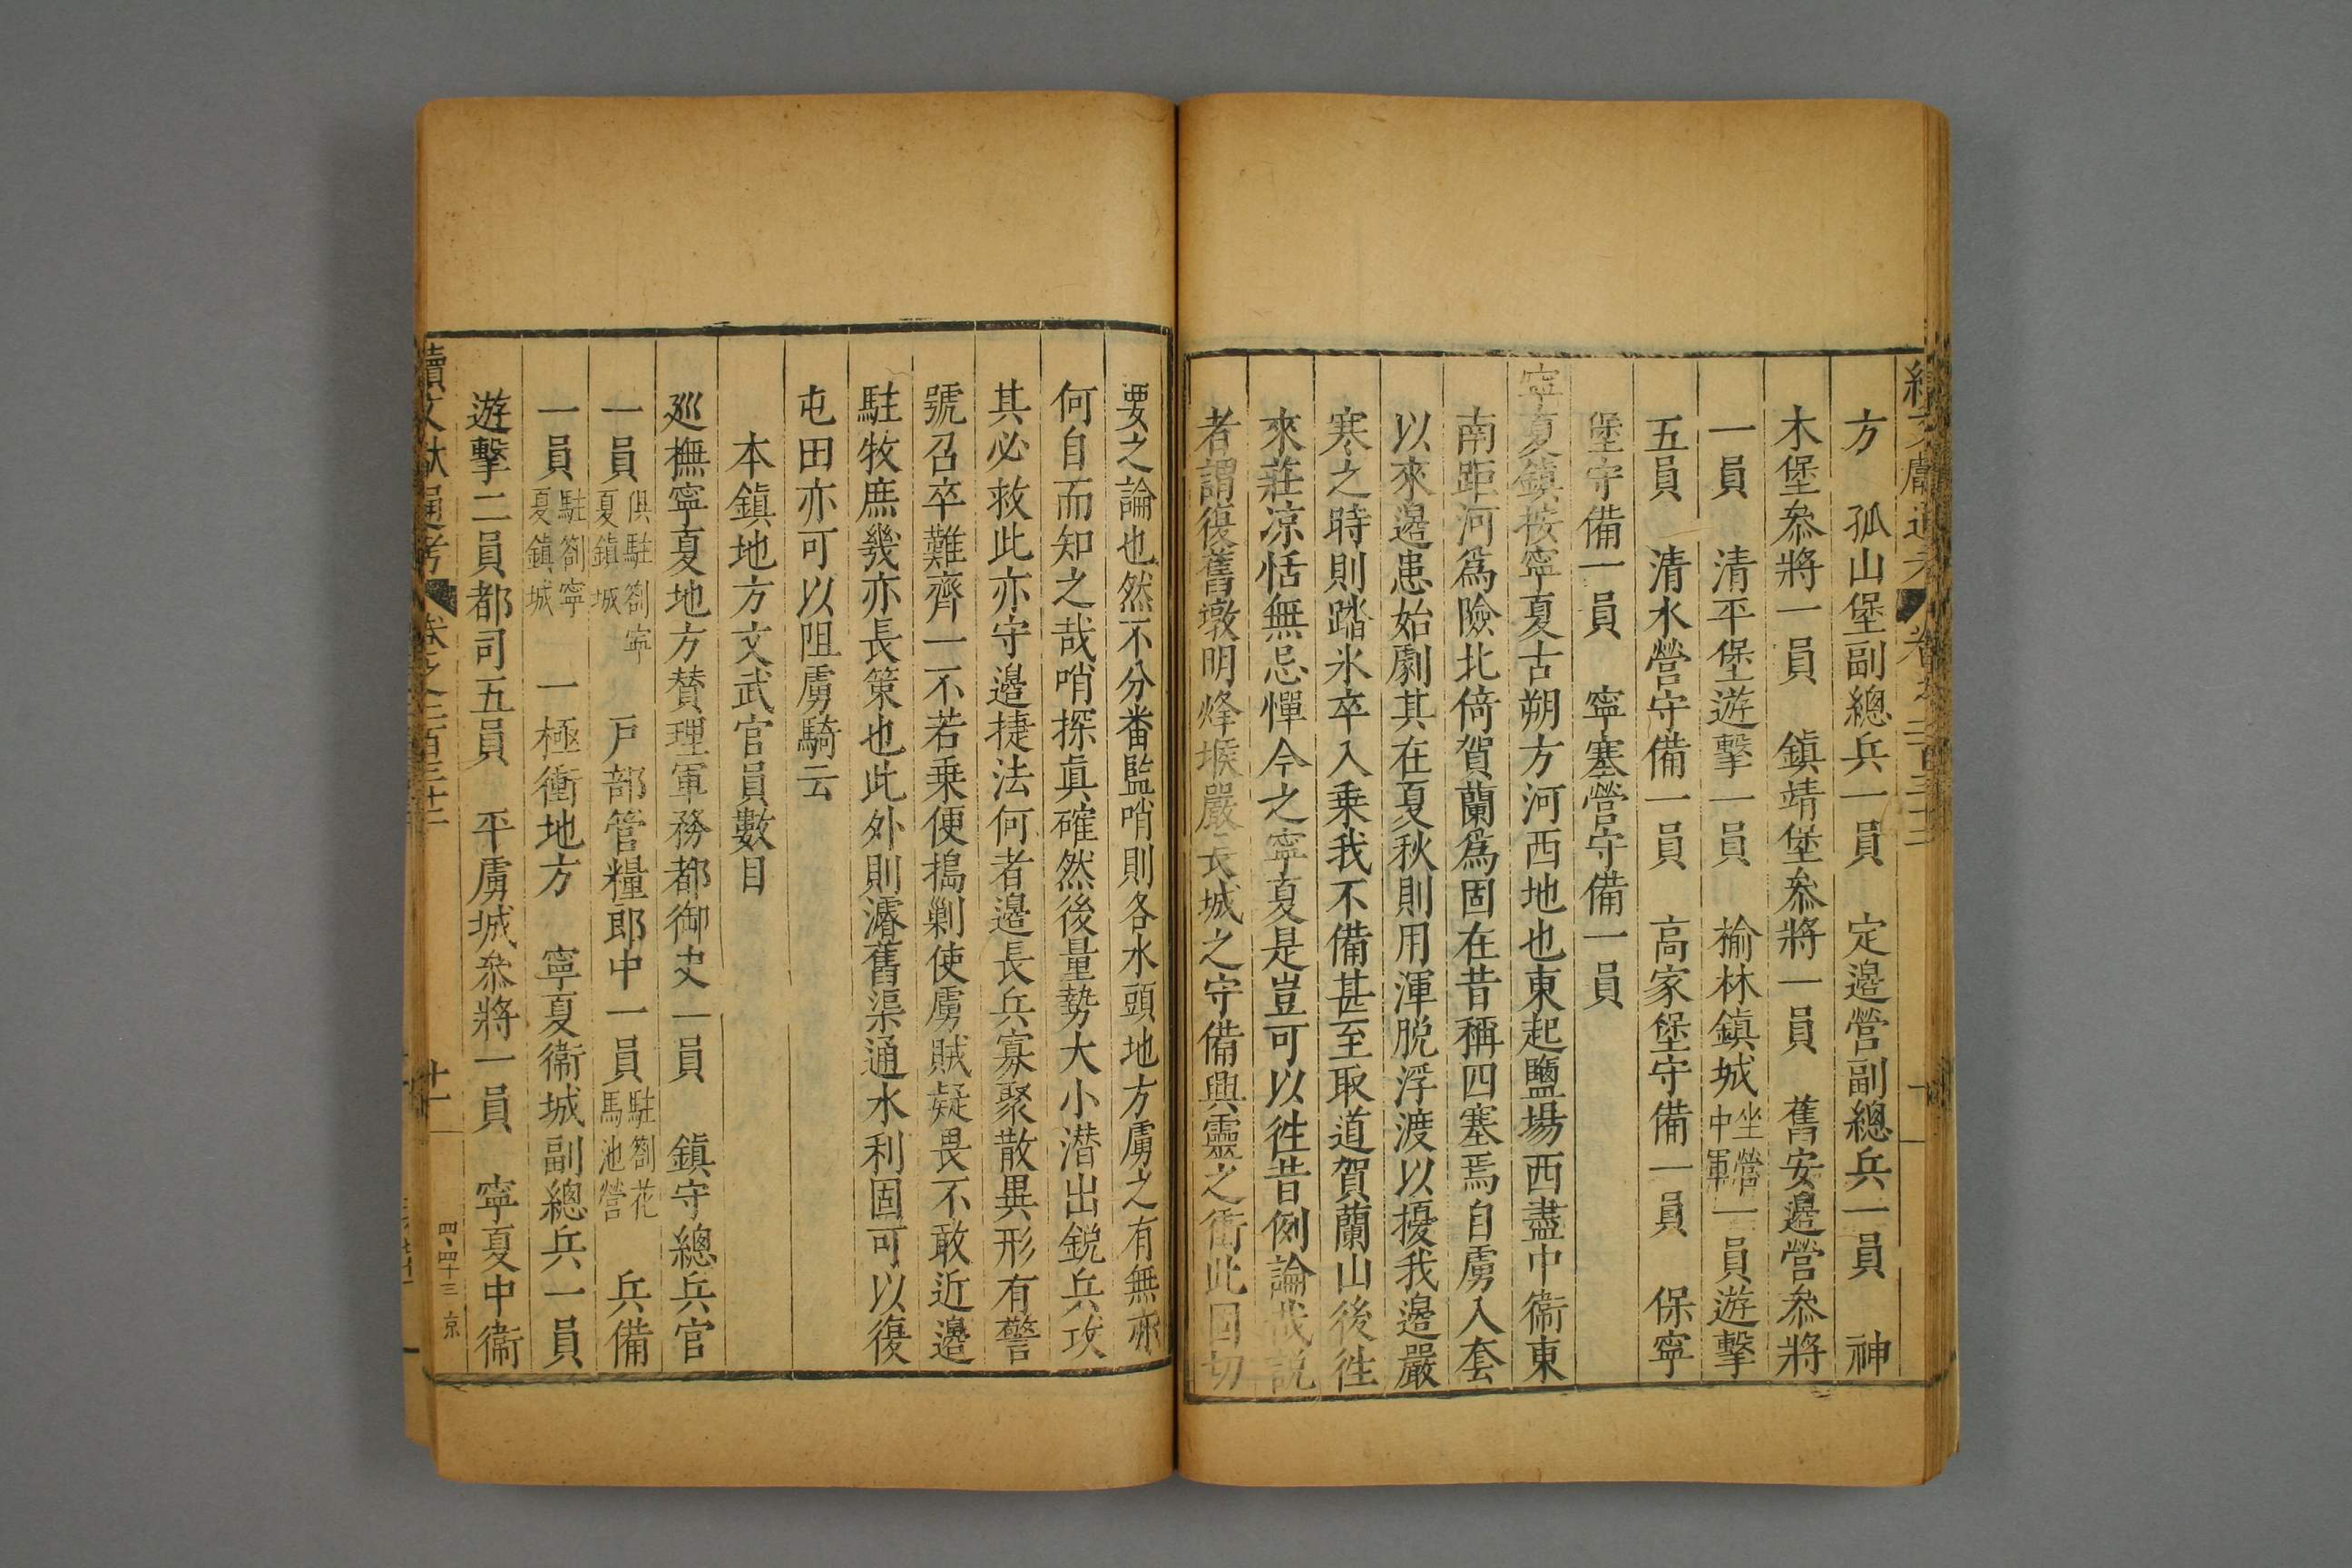 方　孤山堡副總兵一員　定邊營副總兵一員　神
木堡叅將一員　鎮靖堡叅將一員　舊安邊營叅將
一員　清平堡遊擊一員　榆林鎮城坐營中軍一員遊擊
五員　清水營守備一員　高家堡守備一員　保寧
堡守備一員　寧塞營守備一員
寧夏鎮按寧夏古朔方河西地也東起鹽場西盡中衞東
南距河爲險北倚賀蘭爲固在昔稱四塞焉自虜入套
以來邊患始劇其在夏秋則用渾脫浮渡以擾我邊嚴
寒之時則踏氷卒入乗我不備甚至取道賀蘭山後徃
來莊凉恬無忌憚今之寧夏是豈可以徃昔例論哉説
者謂復舊墩明烽堠嚴長城之守備興靈之衝此固切
要之論也然不分番監哨則各水頭地方虜之有無亦
何自而知之哉哨探眞確然後量勢大小潜出銳兵攻
其必救此亦守邊捷法何者邊長兵寡聚散異形有警
號召卒難齊一不若乗便搗剿使虜賊疑畏不敢近邊
駐牧庶幾亦長策也此外則濬舊渠通水利固可以復
屯田亦可以阻虜騎云
本鎮地方文武官員數目
巡撫寧夏地方賛理軍務都御史一員　鎮守總兵官
一員俱駐劄寧夏鎮城　戶部管糧郎中一員駐劄花馬池營　兵備
一員駐劄寧夏鎮城　一極衝地方　寧夏衞城副總兵一員
遊擊二員都司五員　平虜城叅將一員　寧夏中衞
續文獻通考　卷之二百三十二　十一　四四十三　京